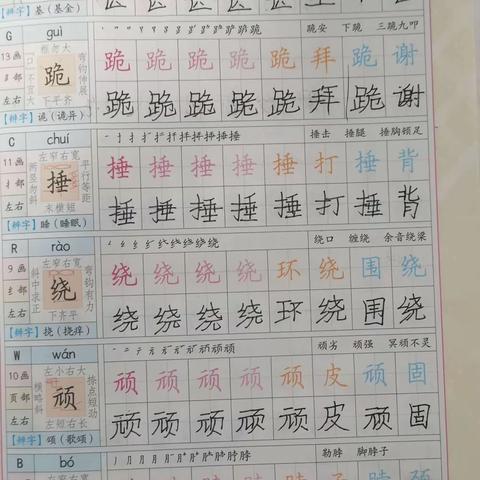 【辨字】基(基金)
G guì 跪安 下跪 三跪九叩
13画 跪 跪 跪 跪 跪 拜 跪 谢
部 跪
左右 下平齐 跪 跪 跪 跪 拜 跪 谢
【辨字】诡(诡异)
C chuí 捶击 捶腿 捶胸顿足
11画 左窄右宽 捶 捶 捶 捶 打 捶 背
扌部 捶 平行等距
左右 末横短 捶 捶 捶 捶 打 捶 背
【辨字】睡(睡眠)
R rào 绕口 缠绕 余音绕梁
9画 左窄右宽 绕 绕 绕 绕 环 绕 围 绕
纟部 斜中求正 绕 弯钩有力
左右 下齐平 绕 绕 绕 绕 环 绕 围 绕
【辨字】挠(挠痒)
W wán 顽劣 顽强 冥顽不灵
10画 左小右大 顽 顽 顽 顽 顽 皮 顽 固
页部 横略斜 顽 捺点短劲
左右 左短右长 顽 顽 顽 顽 顽 皮 顽 固
【辨字】颂(歌颂)
B bó 勒脖 脚脖子
左窄右宽 脖 脖 脖 脖 脖 子 脖 颈